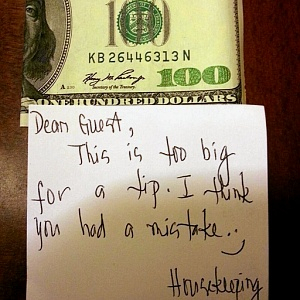 100
KB 26446313 N
Secretary of the Treasury.
100
ONE HUNDRED DOLLARS
Dear Guest,
This is too big
for a tip. I think
you had a mistake.
Housekeeping